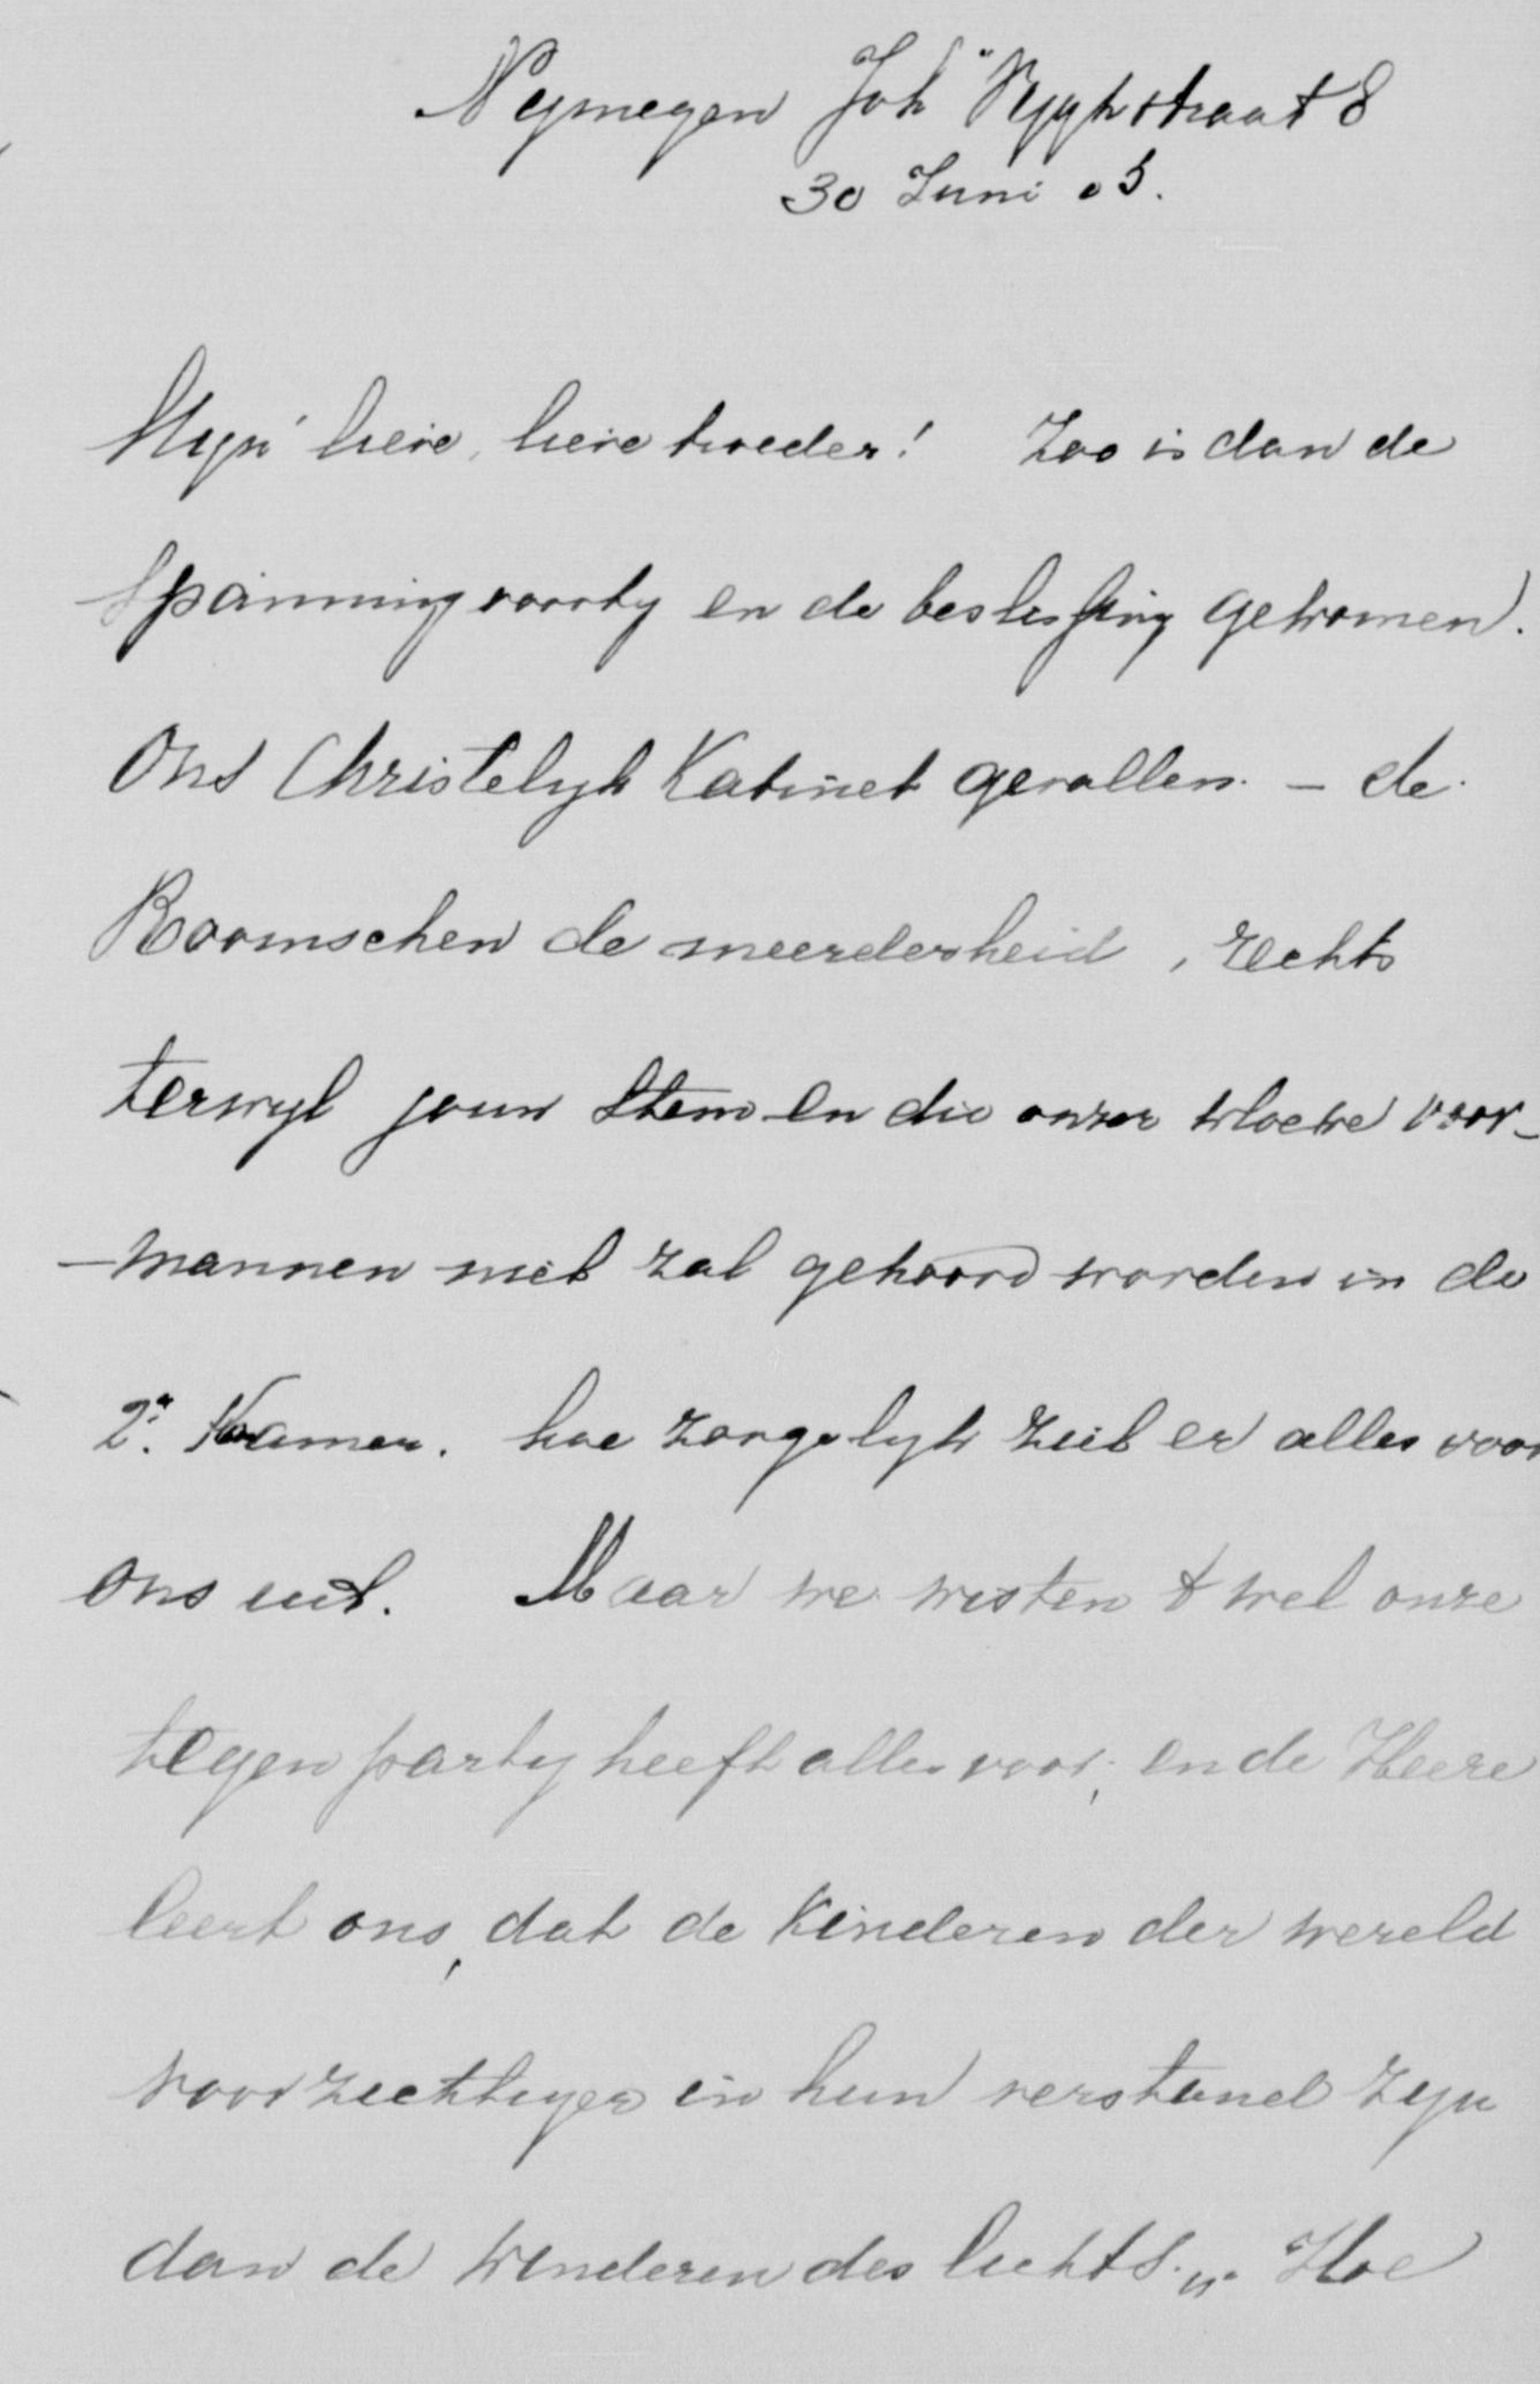 Nymegen Joh Vyghstraat 8
30 Juni 05.
Myn lieve, lieve broeder! Zoo is dan de
Spanning voorby en de beslissing gekomen.
Ons Christelyk Kabinet gevallen. – de
Roomschen de meerderheid, rechts
terwyl jouw Stem en die onzer kloeke voor-
-mannen niet zal gehoord worden in de
2e. Kamer. hoe zorgelyk ziet er alles voor
ons uit. Maar we wisten 't wel onze
tegenparty heeft alles voor; en de Heere
leert ons, dat de Kinderen der wereld
voorzichtiger in hun verstand zyn
dan de kinderen des lichts." Hoe